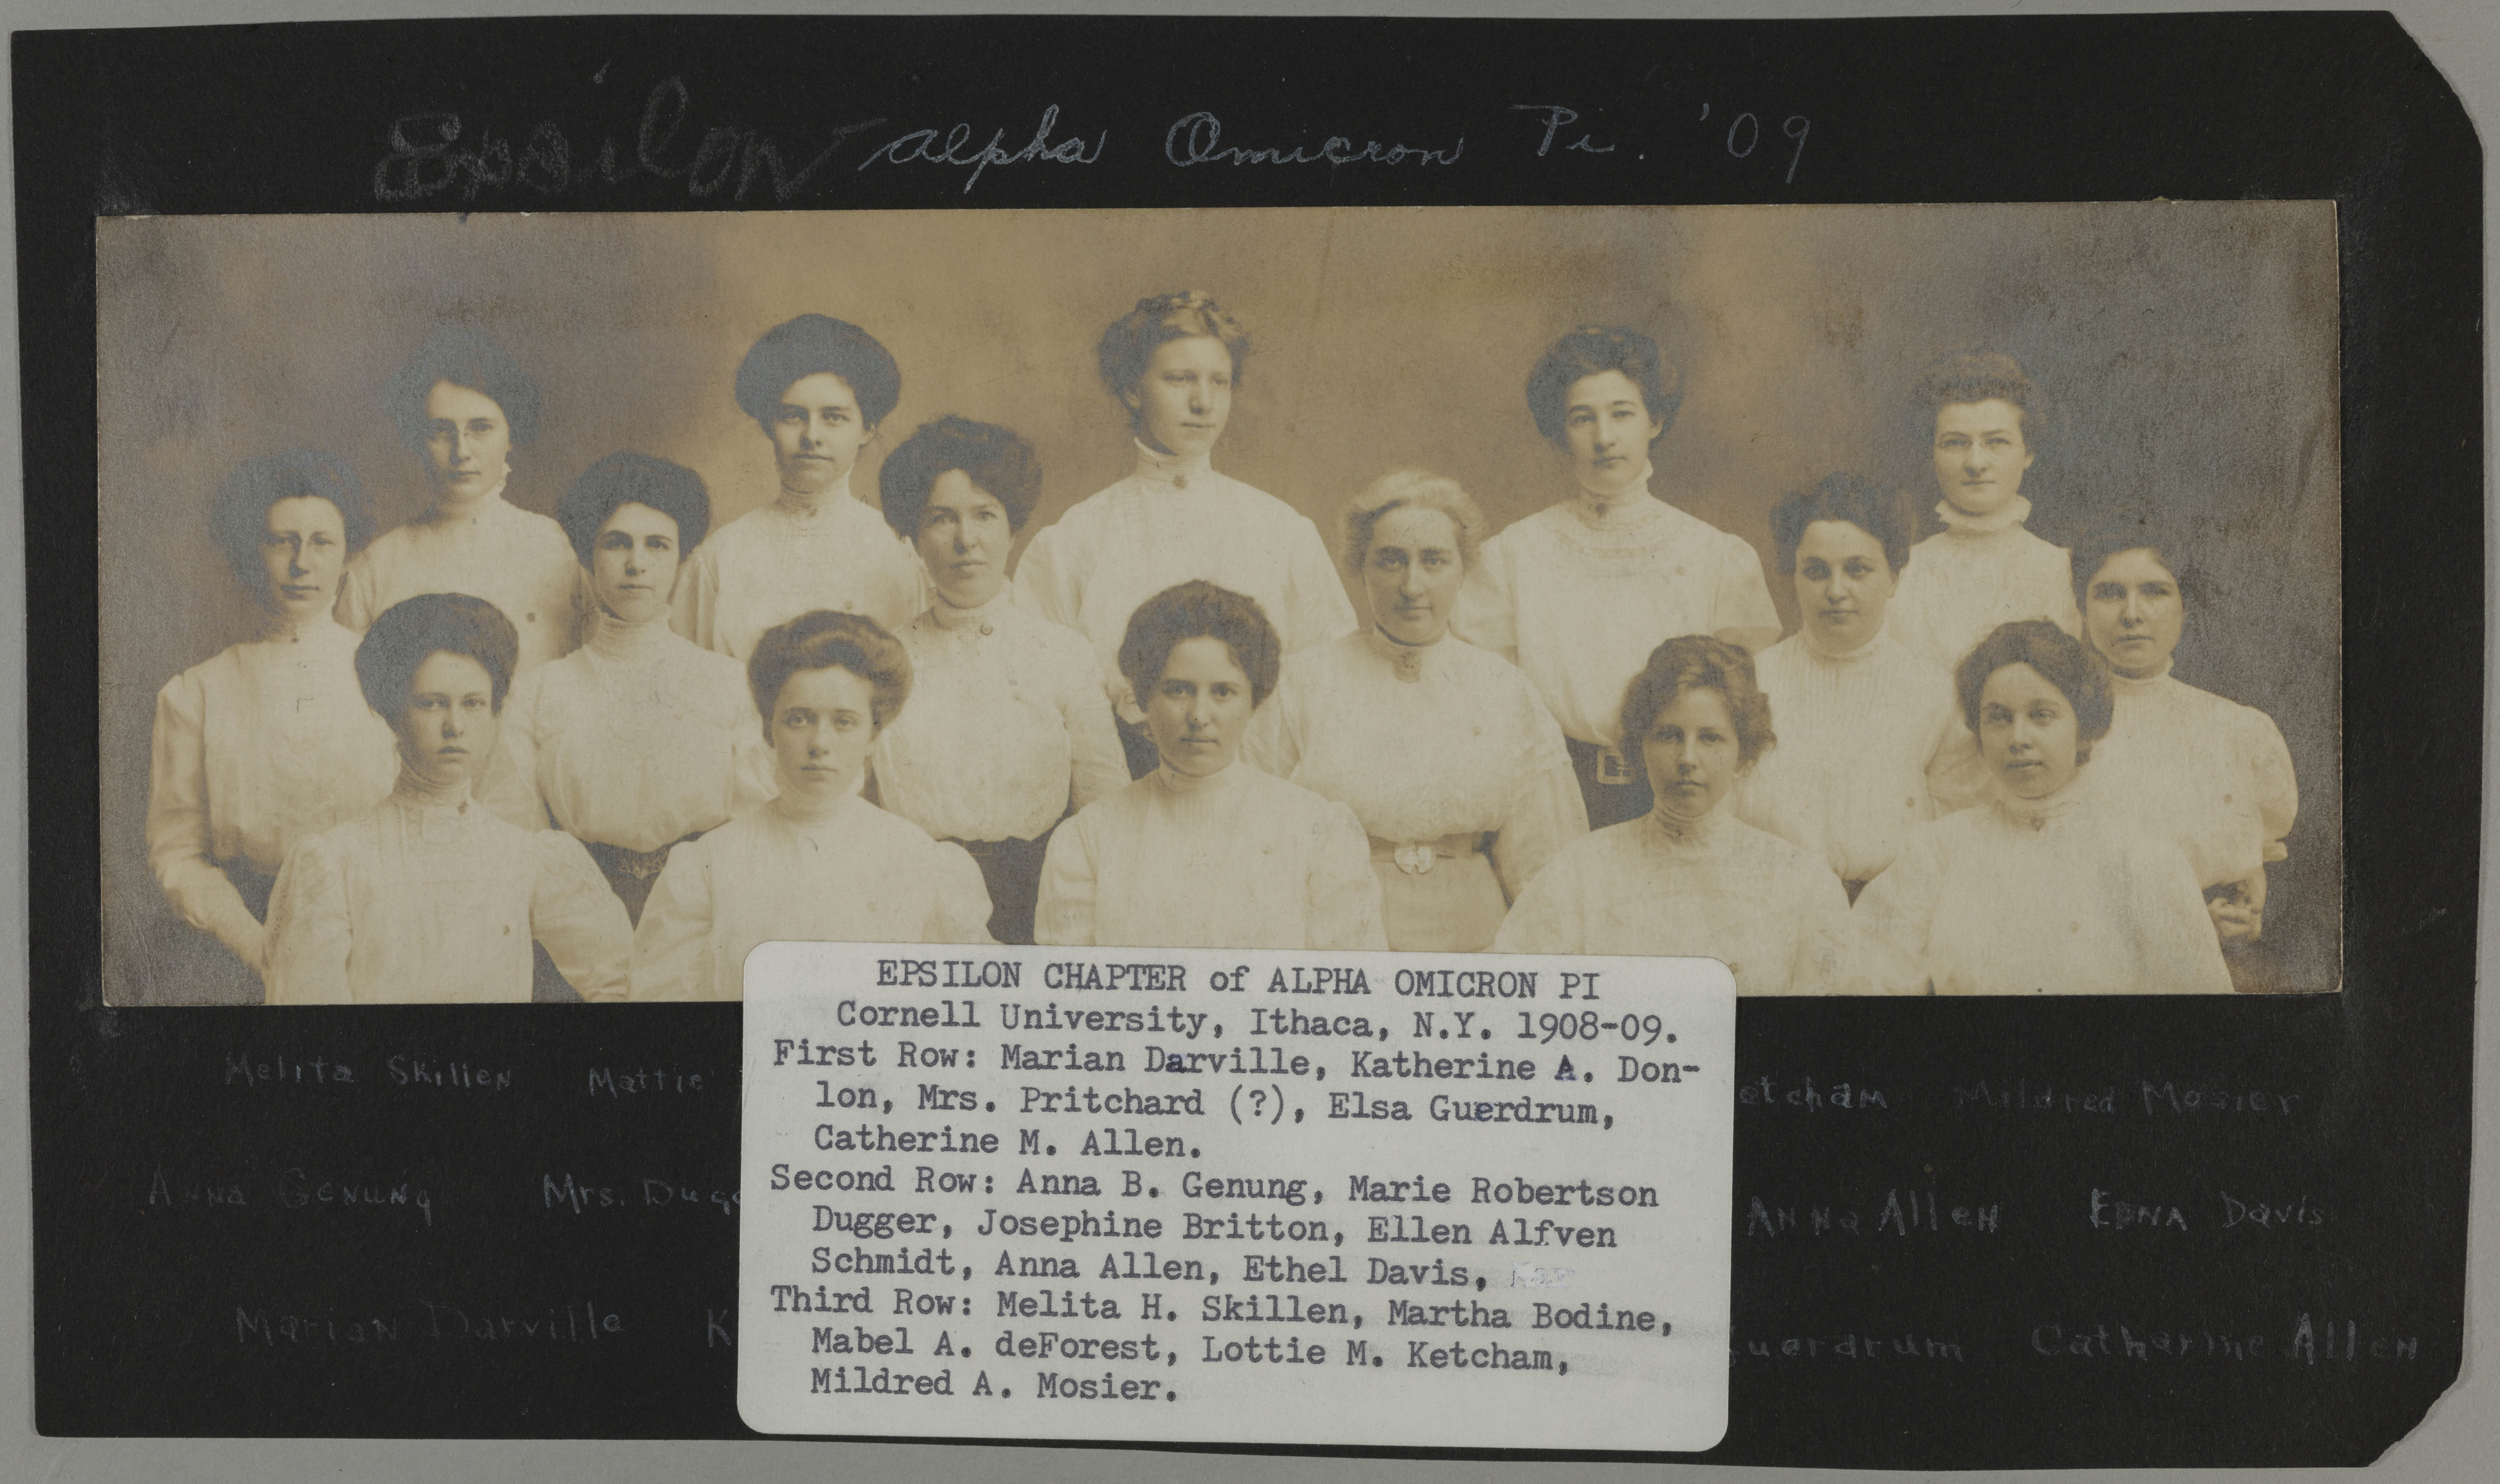 Epsilon - Alpha Omicron Pi. '09
EPSILON CHAPTER of ALPHA OMICRON PI
Cornell University, Ithaca, N.Y. 1908-09.
First Row: Marian Darville, Katherine A. Don-
lon, Mrs. Pritchard (?), Elsa Guerdrum,
Catherine M. Allen.
Second Row: Anna B. Genung, Marie Robertson
Dugger, Josephine Britton, Ellen Alfven
Schmidt, Anna Allen, Ethel Davis,
Third Row: Melita H. Skillen, Martha Bodine,
Mabel A. deForest, Lottie M. Ketcham,
Mildred A. Mosier.
Melita Skillen Mattie etcham Mildred Mosier
Anna Genung Mrs. Dugg Anna Allen Edna Davis
Marian Darville K Guerdrum Catharine Allen